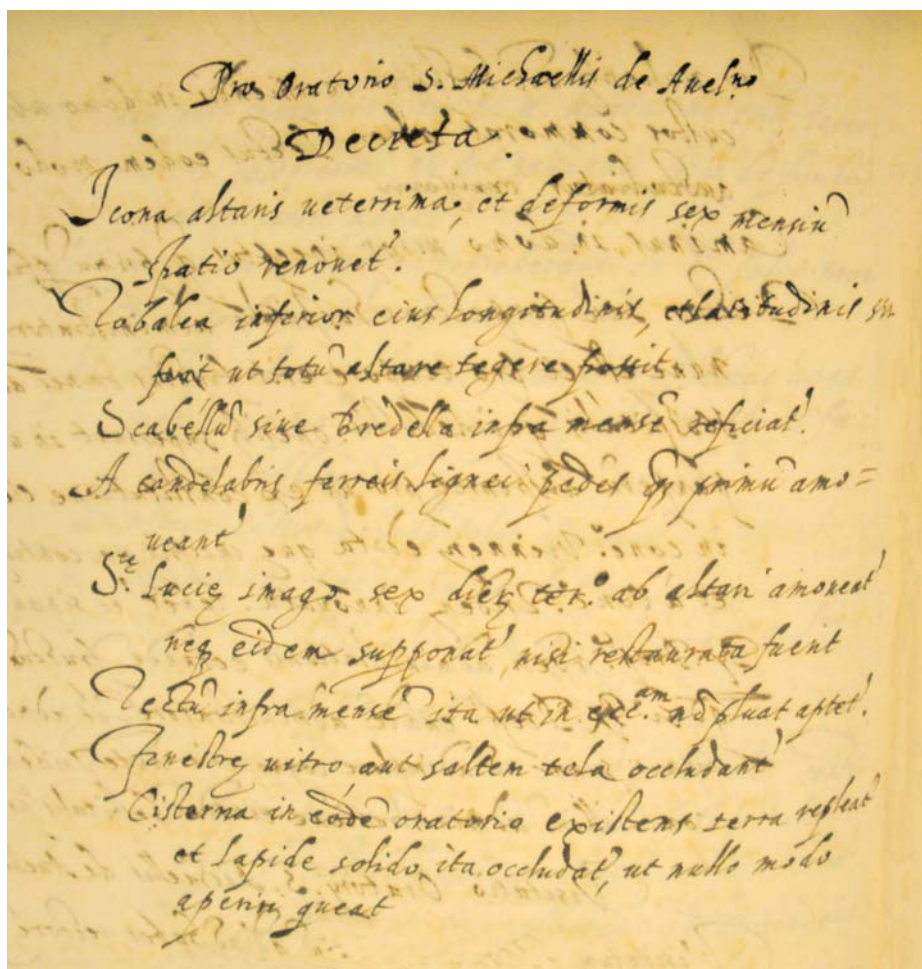 Pro Oratorio S. Michaellis de Auel.no
Decreta.
Icona altaris ueterrima, et deformis sex mensiũ
spatio renouet'.
Tobalea inferior eius longitudinis, et latitudinis
fiat ut totũ altare tegere possit.
Scabellũ siue Bredella infra mensẽ reficiat'.
A candelabris ferreis lignei pedes q̃ primũ amo=
ueant'
S.tę Lucię imago sex dierũ ter.o ab altari amoueat'
neq; eidem supponat', nisi restaurata fuerit
Tectũ infra mensẽ ita ut in eccl.am nõ pluat aptet'.
Fenestrę uitro aut saltem tela occludant'
Cisterna in eodẽ oratorio existens terra repleat'
et lapide solido ita occludat', ut nullo modo
aperiri queat